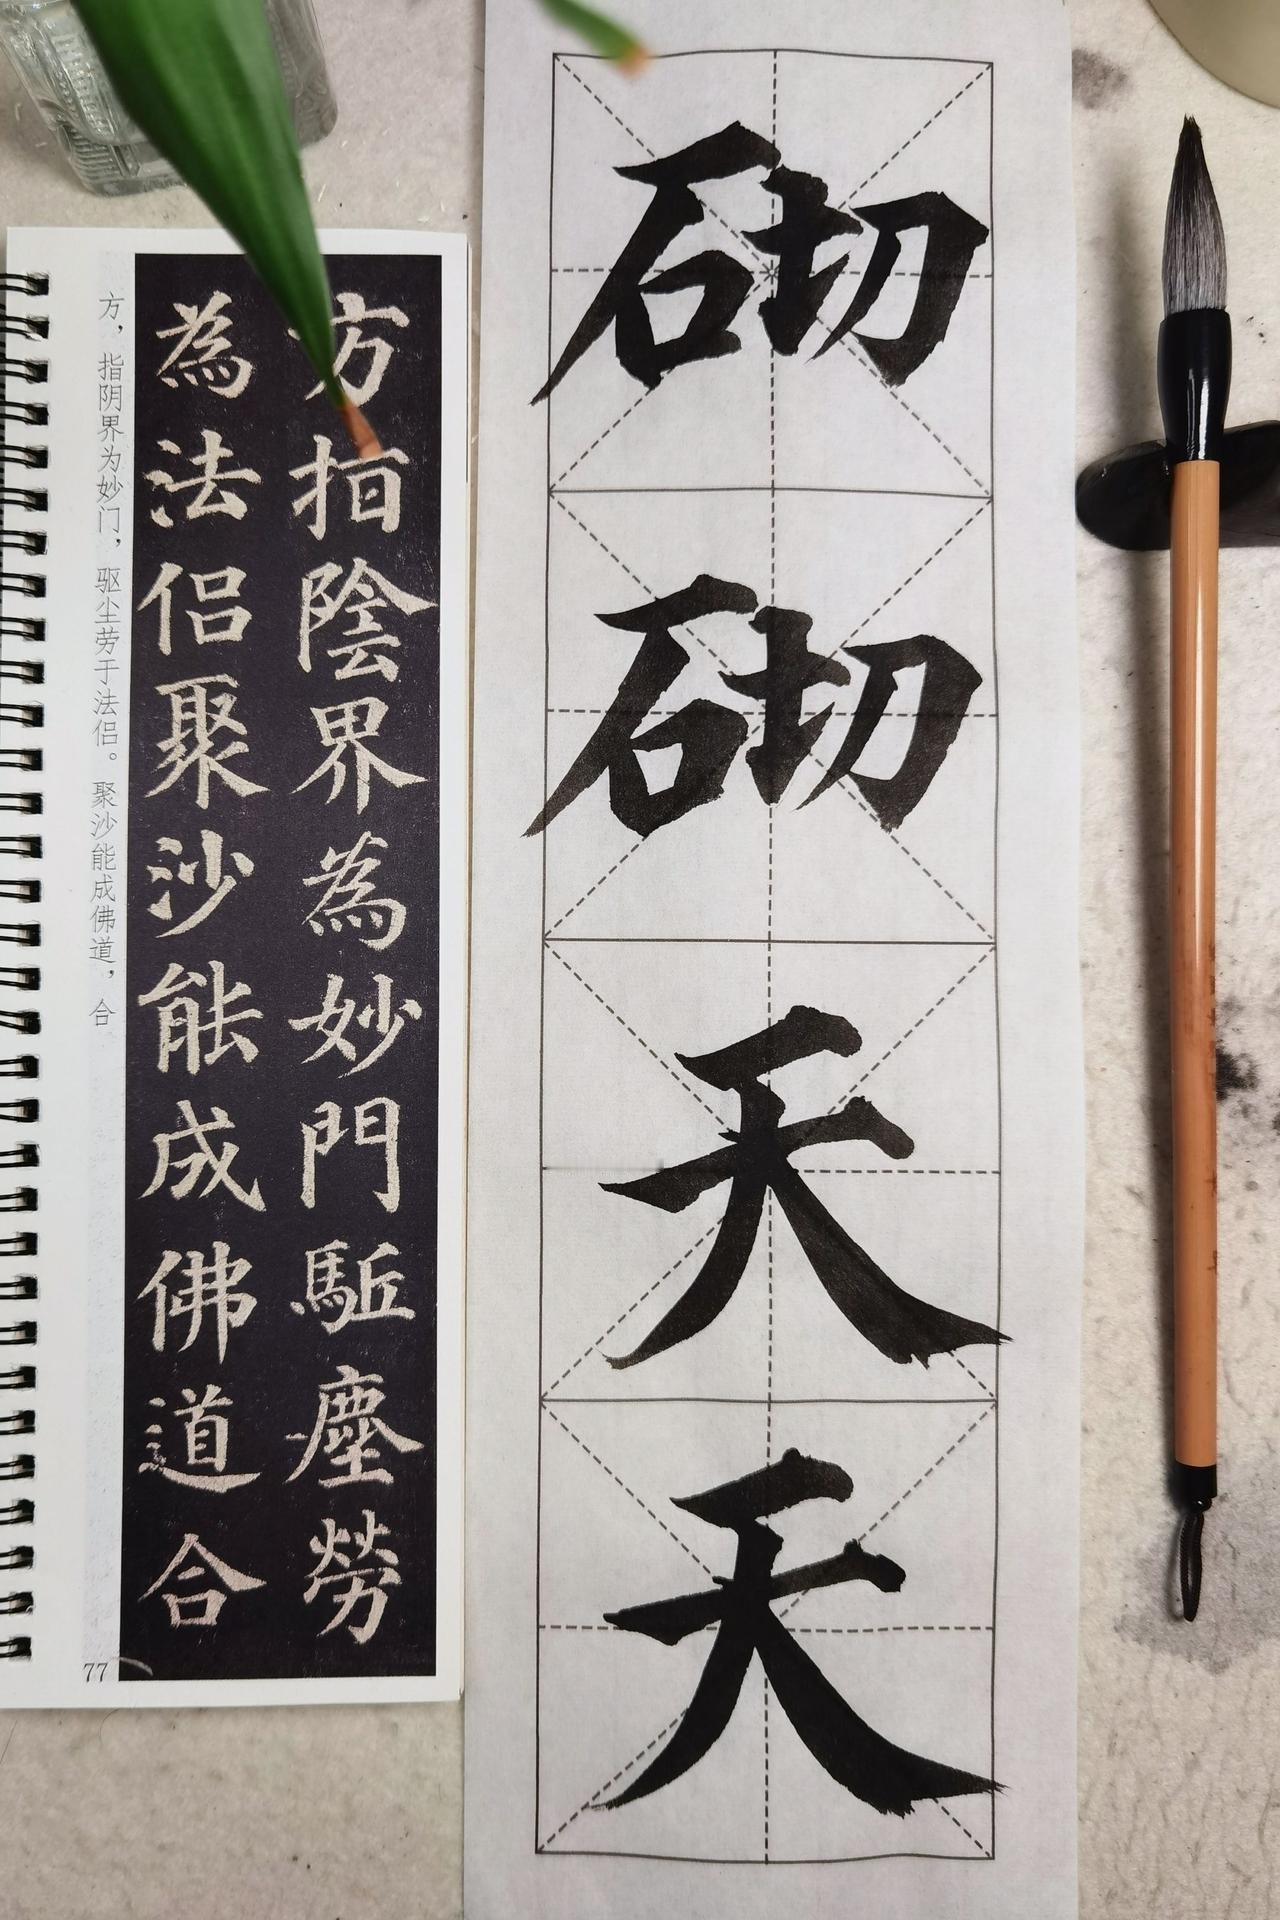 方指陰界為妙門駈塵勞
為法侶聚沙能成佛道合
方，指阴界为妙门，驱尘劳于法侣。聚沙能成佛道，合
77
砌砌天天